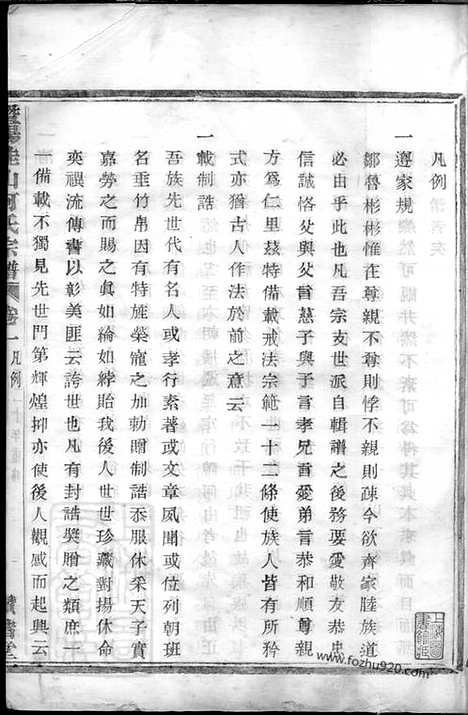 凡例
一遵家規
鄒魯彬彬惟在尊親不尊則悖不親則疎今欲齊家睦族道
必由乎此也凡吾宗支世派自輯譜之後務要愛敬友恭忠
信誠恪父與父言慈子與子言孝兄言愛弟言恭和順尊親
方爲仁里茲特備載戒法宗範一十二條使族人皆有所矜
式亦猶古人作法於前之意云
一載制誥
吾族先世代有名人或孝行素著或文章夙聞或位列朝班
名垂竹帛因有特旌榮寵之加勅贈制誥忝服休采天子實
嘉勞之而賜之眞如綸如綍貽我後人世世珍藏對揚休命
奕禩流傳書以彰美匪云誇世也凡有封誥奬贈之類庶一
一備載不獨見先世門第輝煌抑亦使後人觀感而起興云
山何氏宗譜
卷一凡例
堂
www.fozhu920.com